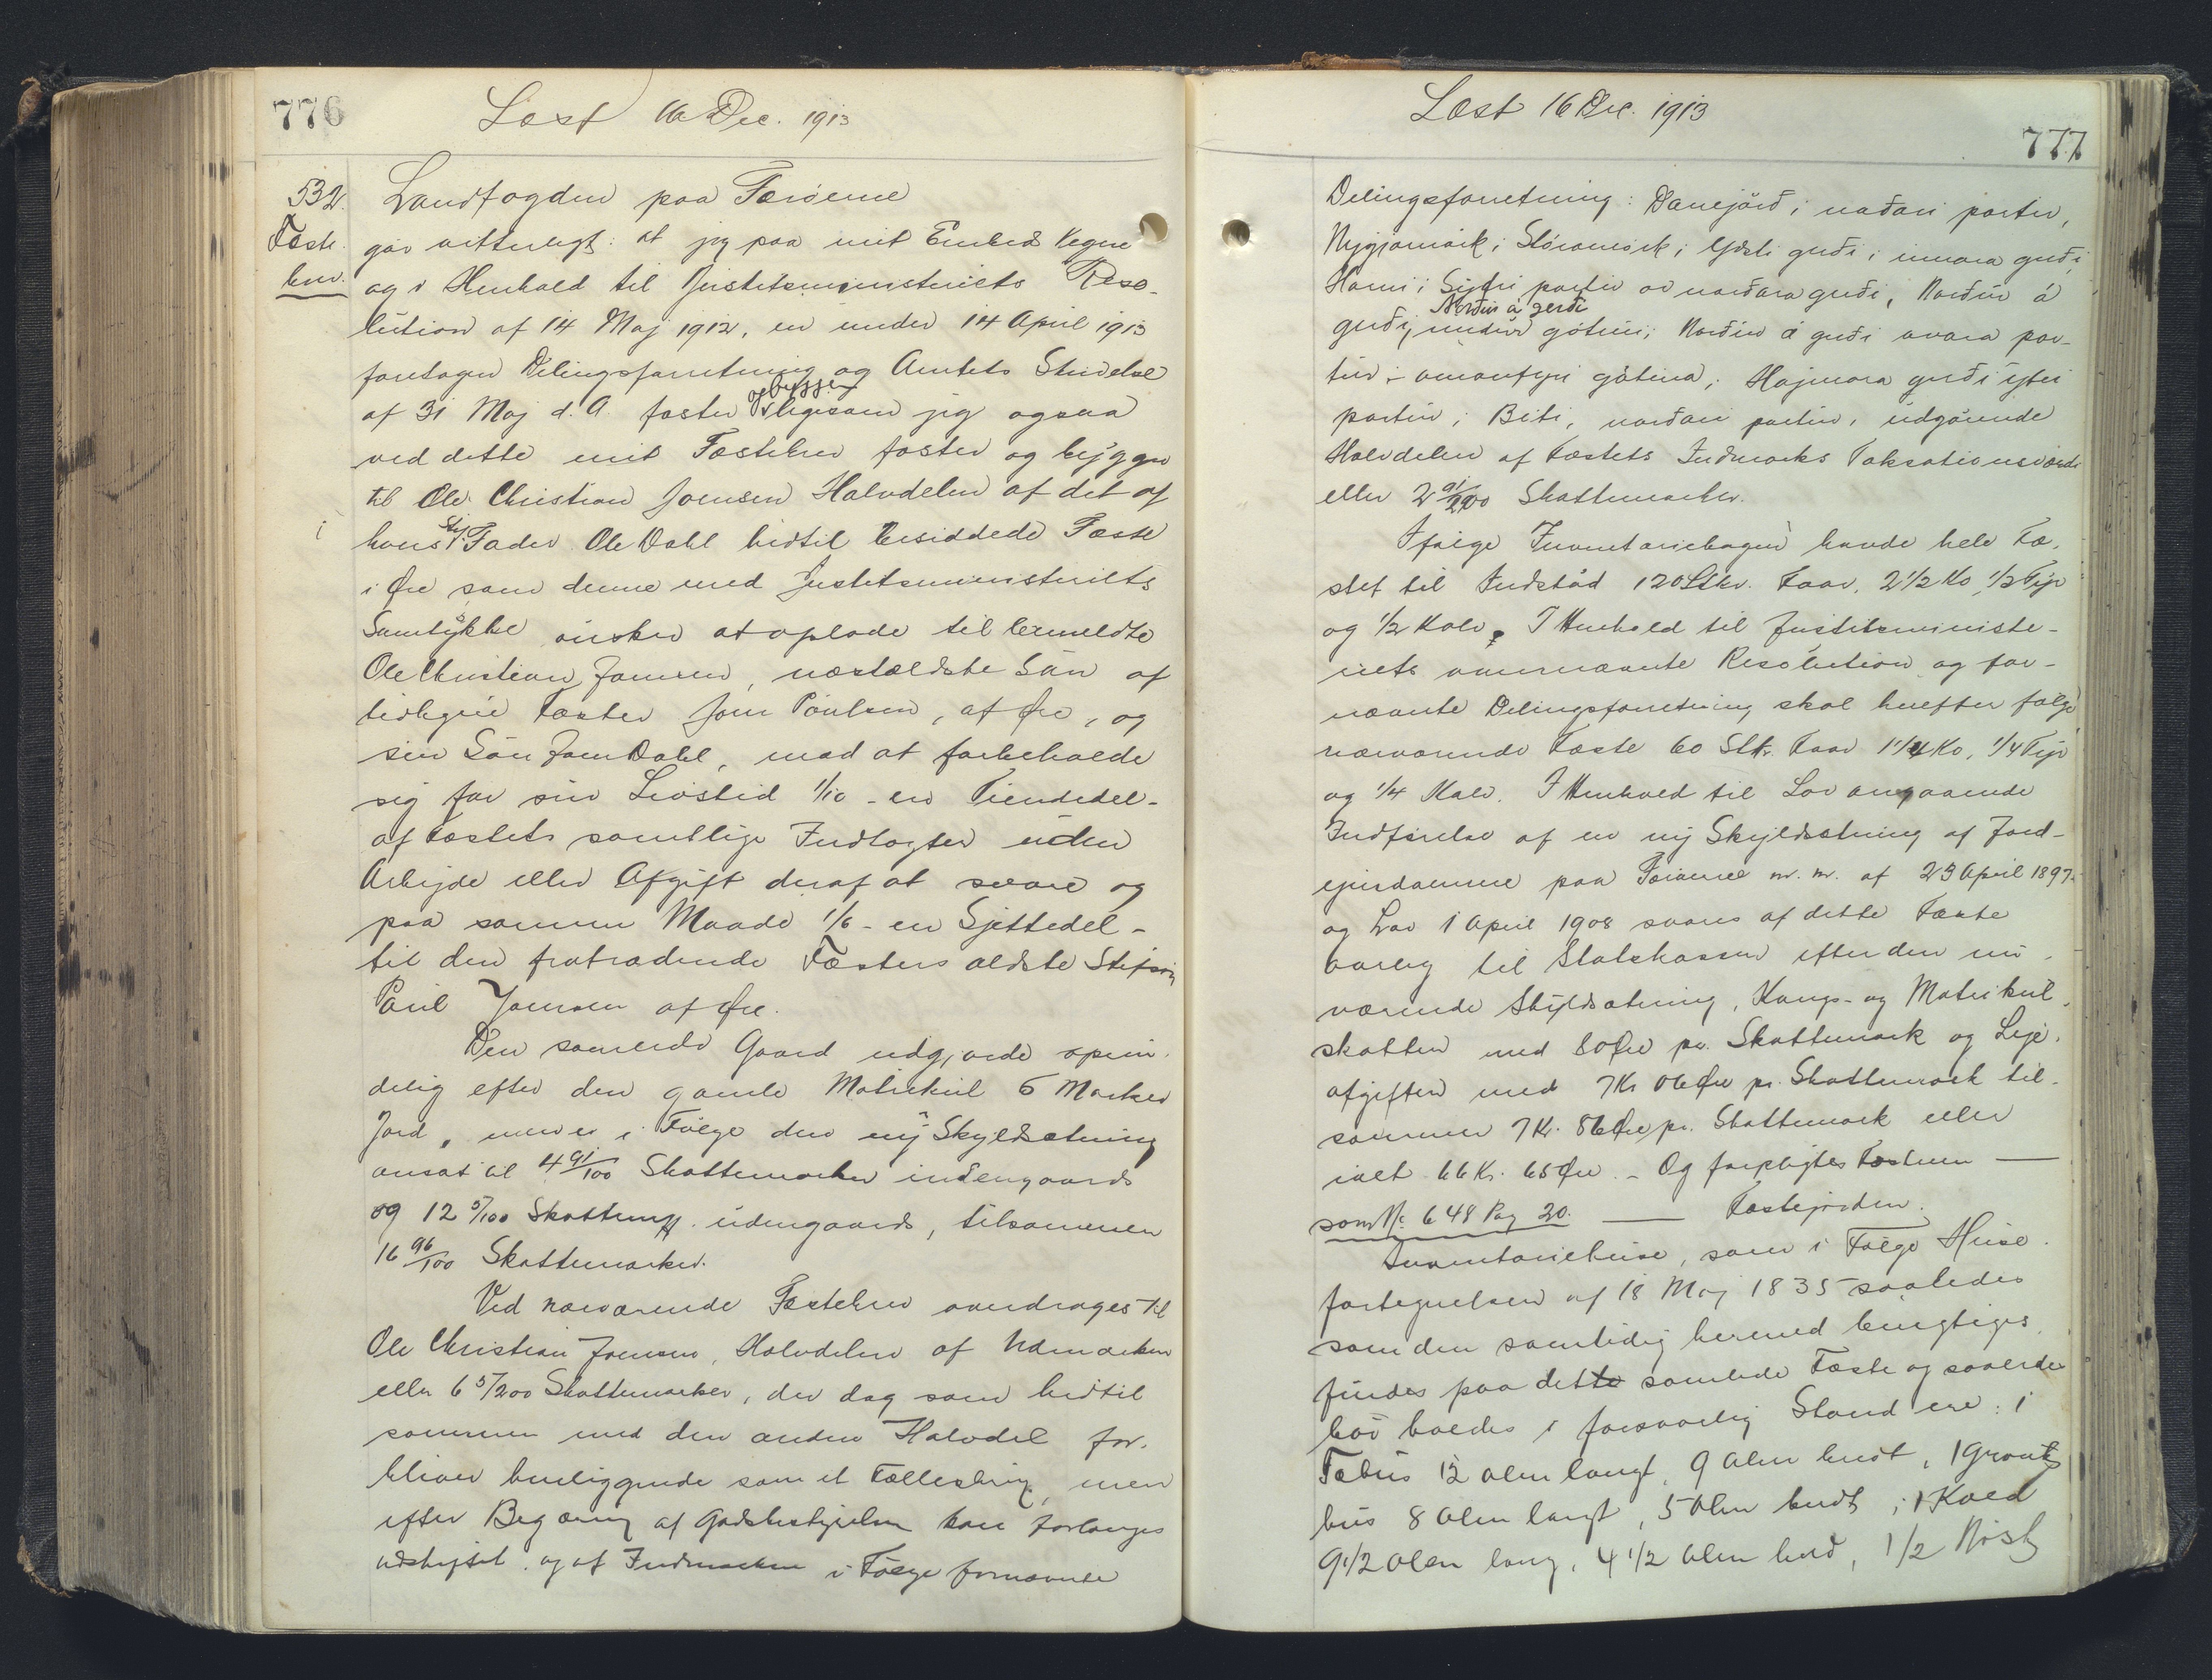 776
Læst 16 Dec. 1913
532.
Fæste-
brev.
Landfogden paa Færøerne
gør vitterligt: at jeg paa mit Embeds Vegne
og i Henhold til Justitsministeriets Reso-
lution af 14 Maj 1912, en under 14 April 1913
foretagen Delingsforretning og Amtets Skrivelse
af 31 Maj d. A. fæster og bygger ligesom jeg ogsaa
ved dette mit Fæstebrev fæster og bygger
til Ole Christian Joensen Halvdelen af det af
hans Stif-Fader Ole Dahl hidtil besiddede Fæste
i Øre som denne med Justitsministeriets
Samtykke ønsker at oplade til bemeldte
Ole Christian Joensen, næstældste Søn af
tidligere Fæster Joen Poulsen, af Øre, og
sin Søn Joen Dahl, mod at forbeholde
sig for sin Livstid 1/10 - en Tiendedel -
af Fæstets samtlige Indtægter uden
Arbejde eller Afgift deraf at svare og
paa samme Maade 1/6 - en Sjettedel -
til den fratrædende Fæsters ældste Stifsøn
Poul Joensen af Øre.
Den samlede Gaard udgjorde oprin-
delig efter den gamle Matrikul 6 Marker
Jord, men er i Følge den ny Skyldsætning
ansat til 4 91/100 Skattemarker indengaards
og 12 5/100 Skattem. udengaards, tilsammen
16 96/100 Skattemarker.
Ved nærværende Fæstebrev overdrages til
Ole Christian Joensen, Halvdelen af Udmarken
eller 6 5/200 Skattemarker, der dog som hidtil
sammen med den anden Halvdel for-
bliver henliggende som et Fælleseje, men
efter Begæring af Godsbestyrelsen kan forlanges
udskiftet og af Indmarken i Følge fornævnte
Læst 16 Dec. 1913
777
Delingsforretning: Danejörð, i norðari partur,
Nygjamørk; Stóramørk; Ytsti gerði; innara gerði
Hamri; Syðri partur av norðara gerði, Norður á
gerði, Norður á gerði undir gøtuni; Norður á gerði ovara par-
tur omanfyri gøtuna; Hajmara gerði ytri
partur; Beiti, norðari partur, udgørende
Halvdelen af Fæstets Indmarks Taksationsværdi
eller 2 91/200 Skattemarker.
Ifølge Inventariebogen havde hele Fæ-
stet til Indstød 120 Stkr. Faar, 2 1/2 Ko, 1/2 Tyr
og 1/2 Kalv. I Henhold til Justitsministe-
riets ovennævnte Resolution og for-
nævnte Delingsforretning skal herefter følge
nærværende Fæste 60 Stk. Faar 1 1/4 Ko, 1/4 Tyr
og 1/4 Kalv. I Henhold til Lov angaaende
Indførelse af en ny Skyldsætning af Jord-
ejendomme paa Færøerne m. m. af 23 April 1897
og Lov 1 April 1908 svares af dette Fæste
aarlig til Statskassen efter den nu-
værende Skyldsætning, Konge- og Matrikul-
skatten med 80 Øre pr. Skattemark og Leje-
afgiften med 7 Kr 06 Øre pr. Skattemark til-
sammen 7 Kr. 86 Øre pr. Skattemark eller
ialt 66 Kr. 65 Øre. - Og forpligtes Fæsteren —
som No 648 Pag 20. — Fæstejorden.
Inventariehuse, som i Følge Huse-
fortegnelsen af 18 Maj 1835 saaledes
som den samtidig hermed berigtiges
findes paa dette samlede Fæste og saaledes
bør holdes i forsvarlig Stand ere: 1
Fæhus 12 Alen langt, 9 Alen bredt, 1
hus 8 Alen langt, 5 Alen bredt; 1
9 1/2 Alen lang, 4 1/2 Alen bred, 1/2 Nøst